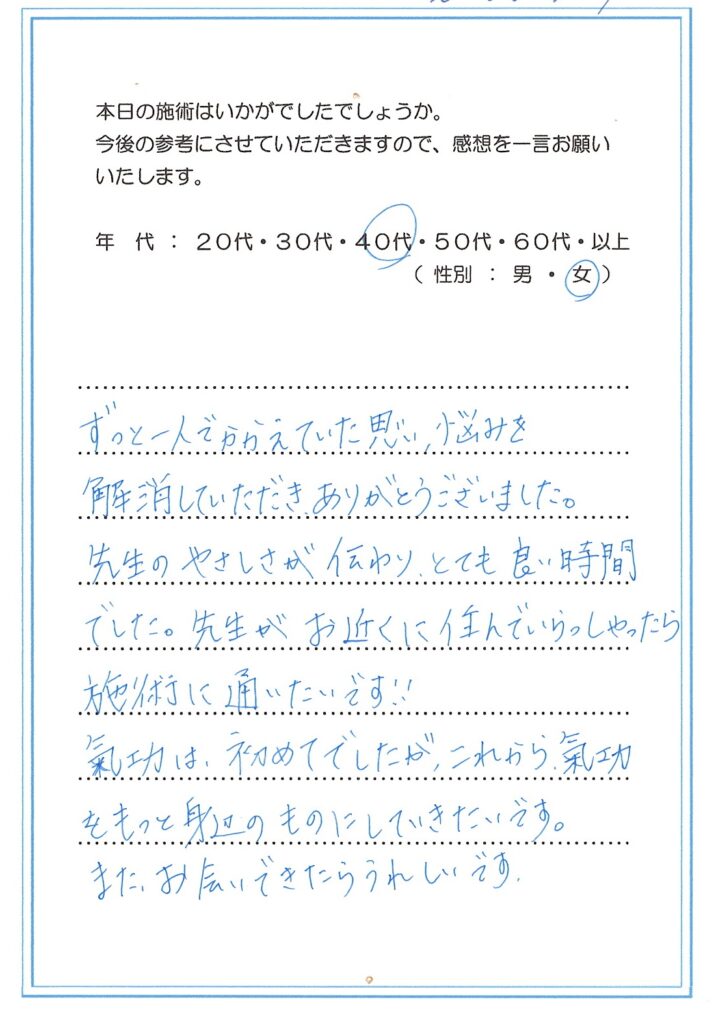 本日の施術はいかがでしたでしょうか。
今後の参考にさせていただきますので、感想を一言お願い
いたします。
年　代　：　２０代・３０代・４０代・５０代・６０代・以上
（　性別　：　男　・　女　）
ずっと一人でかかえていた思い、悩みを
解消していただき、ありがとうございました。
先生の やさしさが 伝わり、とても 良い時間
でした。先生が お近くに住んでいらっしゃったら
施術に 通いたいです!!
氣功は、初めてでしたが、これから、氣功
をもっと身辺のものにしていきたいです。
また、お会いできたらうれしいです。